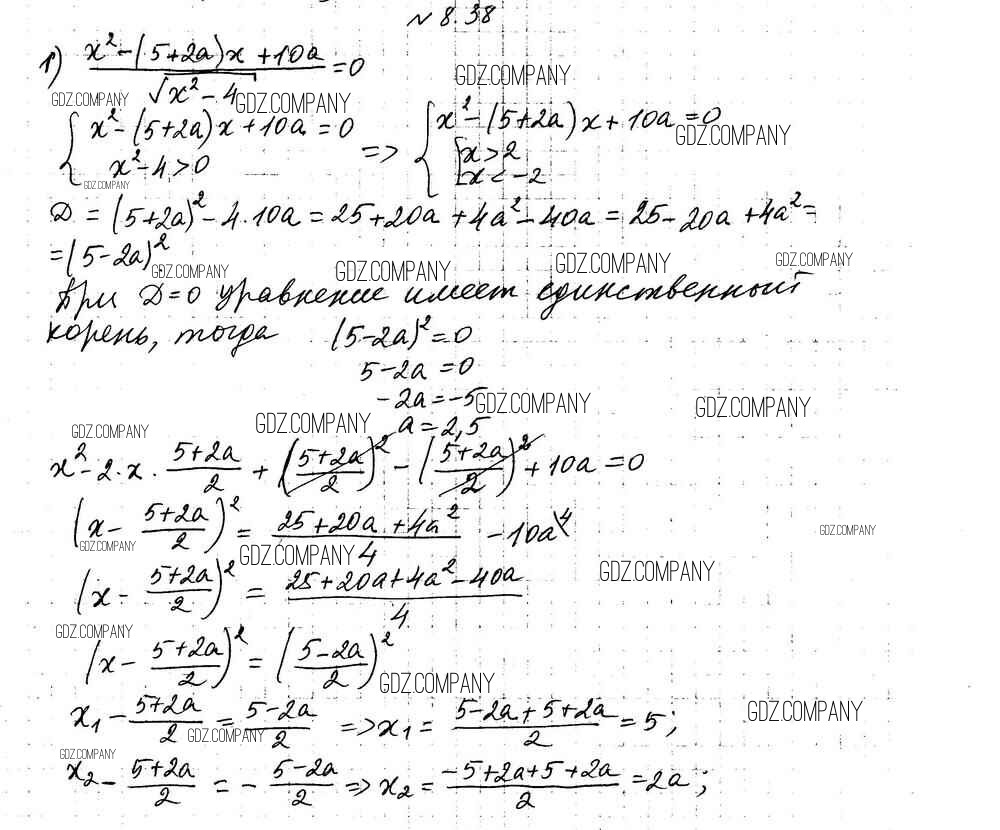 № 8.38
1) (x² - (5+2a)x + 10a) / √(x² - 4) = 0
GDZ.COMPANY GDZ.COMPANY GDZ.COMPANY
{ x² - (5+2a)x + 10a = 0 => { x² - (5+2a)x + 10a = 0
x² - 4 > 0 [ x > 2
x < -2
GDZ.COMPANY GDZ.COMPANY
D = (5+2a)² - 4·10a = 25+20a+4a² - 40a = 25 - 20a + 4a² =
= (5-2a)².
GDZ.COMPANY GDZ.COMPANY GDZ.COMPANY GDZ.COMPANY
При D=0 уравнение имеет единственный
корень, тогда (5-2a)² = 0
5-2a = 0
-2a = -5
GDZ.COMPANY GDZ.COMPANY
a = 2,5
GDZ.COMPANY GDZ.COMPANY
x² - 2·x·(5+2a)/2 + ((5+2a)/2)² - ((5+2a)/2)² + 10a = 0
(x - (5+2a)/2)² = (25+20a+4a²)/4 - 10a\4
GDZ.COMPANY GDZ.COMPANY GDZ.COMPANY GDZ.COMPANY
(x - (5+2a)/2)² = (25+20a+4a²-40a)/4
GDZ.COMPANY
(x - (5+2a)/2)² = ((5-2a)/2)²
GDZ.COMPANY
x₁ - (5+2a)/2 = (5-2a)/2 => x₁ = (5-2a+5+2a)/2 = 5;
GDZ.COMPANY GDZ.COMPANY
GDZ.COMPANY
x₂ - (5+2a)/2 = - (5-2a)/2 => x₂ = (-5+2a+5+2a)/2 = 2a;